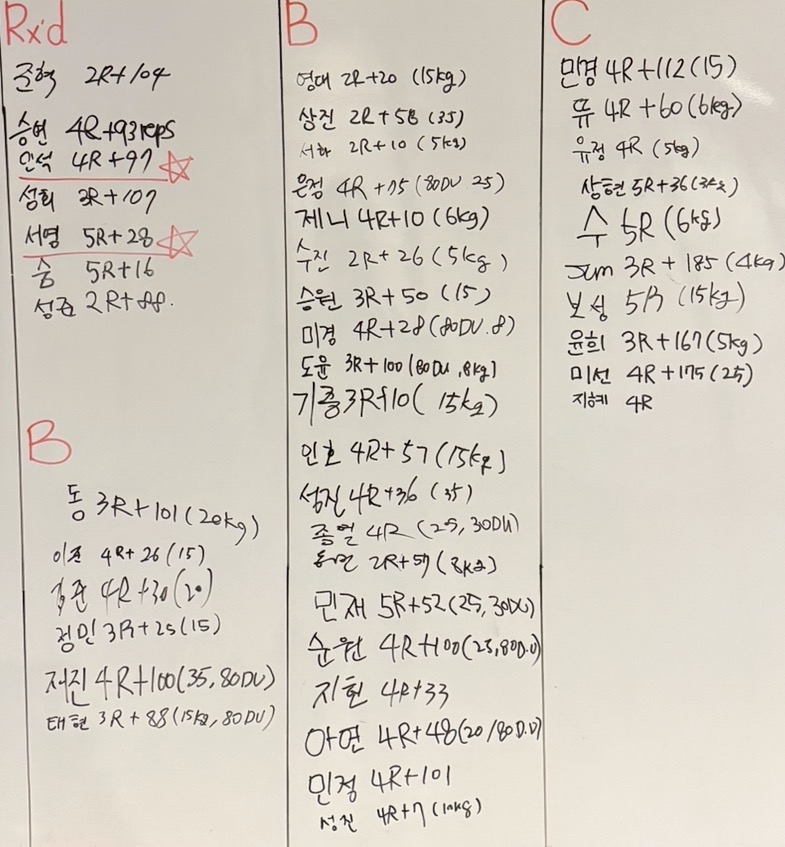 Rx'd
준혁 2R+104
승연 4R+93reps
인석 4R+97
성희 3R+107
서영 5R+28
숨 5R+16
성준 2R+88.
B
동 3R+101(20kg)
이준 4R+26(15)
4R+30(20)
정민 3R+25(15)
저진 4R+100(35,80DU)
태현 3R+88(15kg,80DU)
B
영대 2R+20 (15kg)
상진 2R+58 (35)
서하 2R+10 (5kg)
은정 4R+75(80DU 25)
제니 4R+10 (6kg)
수진 2R+26(5kg)
승원 3R+50 (15)
미경 4R+28(80DU.8)
도윤 3R+100(80DU,8kg)
기종 3R+10( 15kg)
인호 4R+57(15kg)
성진 4R+36 (35)
종열 4R (25,30DU)
2R+57(8kg)
민재 5R+52(25,30DU)
순원 4R+100(25,80D.U)
지현 4R+33
아연 4R+48(20/80D.U)
민정 4R+101
성진 4R+7(10kg)
C
민경 4R+112(15)
뜌 4R+60(6kg)
유정 4R (5kg)
상현 5R+36
수 5R(6kg)
Jum 3R+185(4kg)
보성 5R (15kg)
윤희 3R+167(5kg)
미선 4R+175(25)
지혜 4R